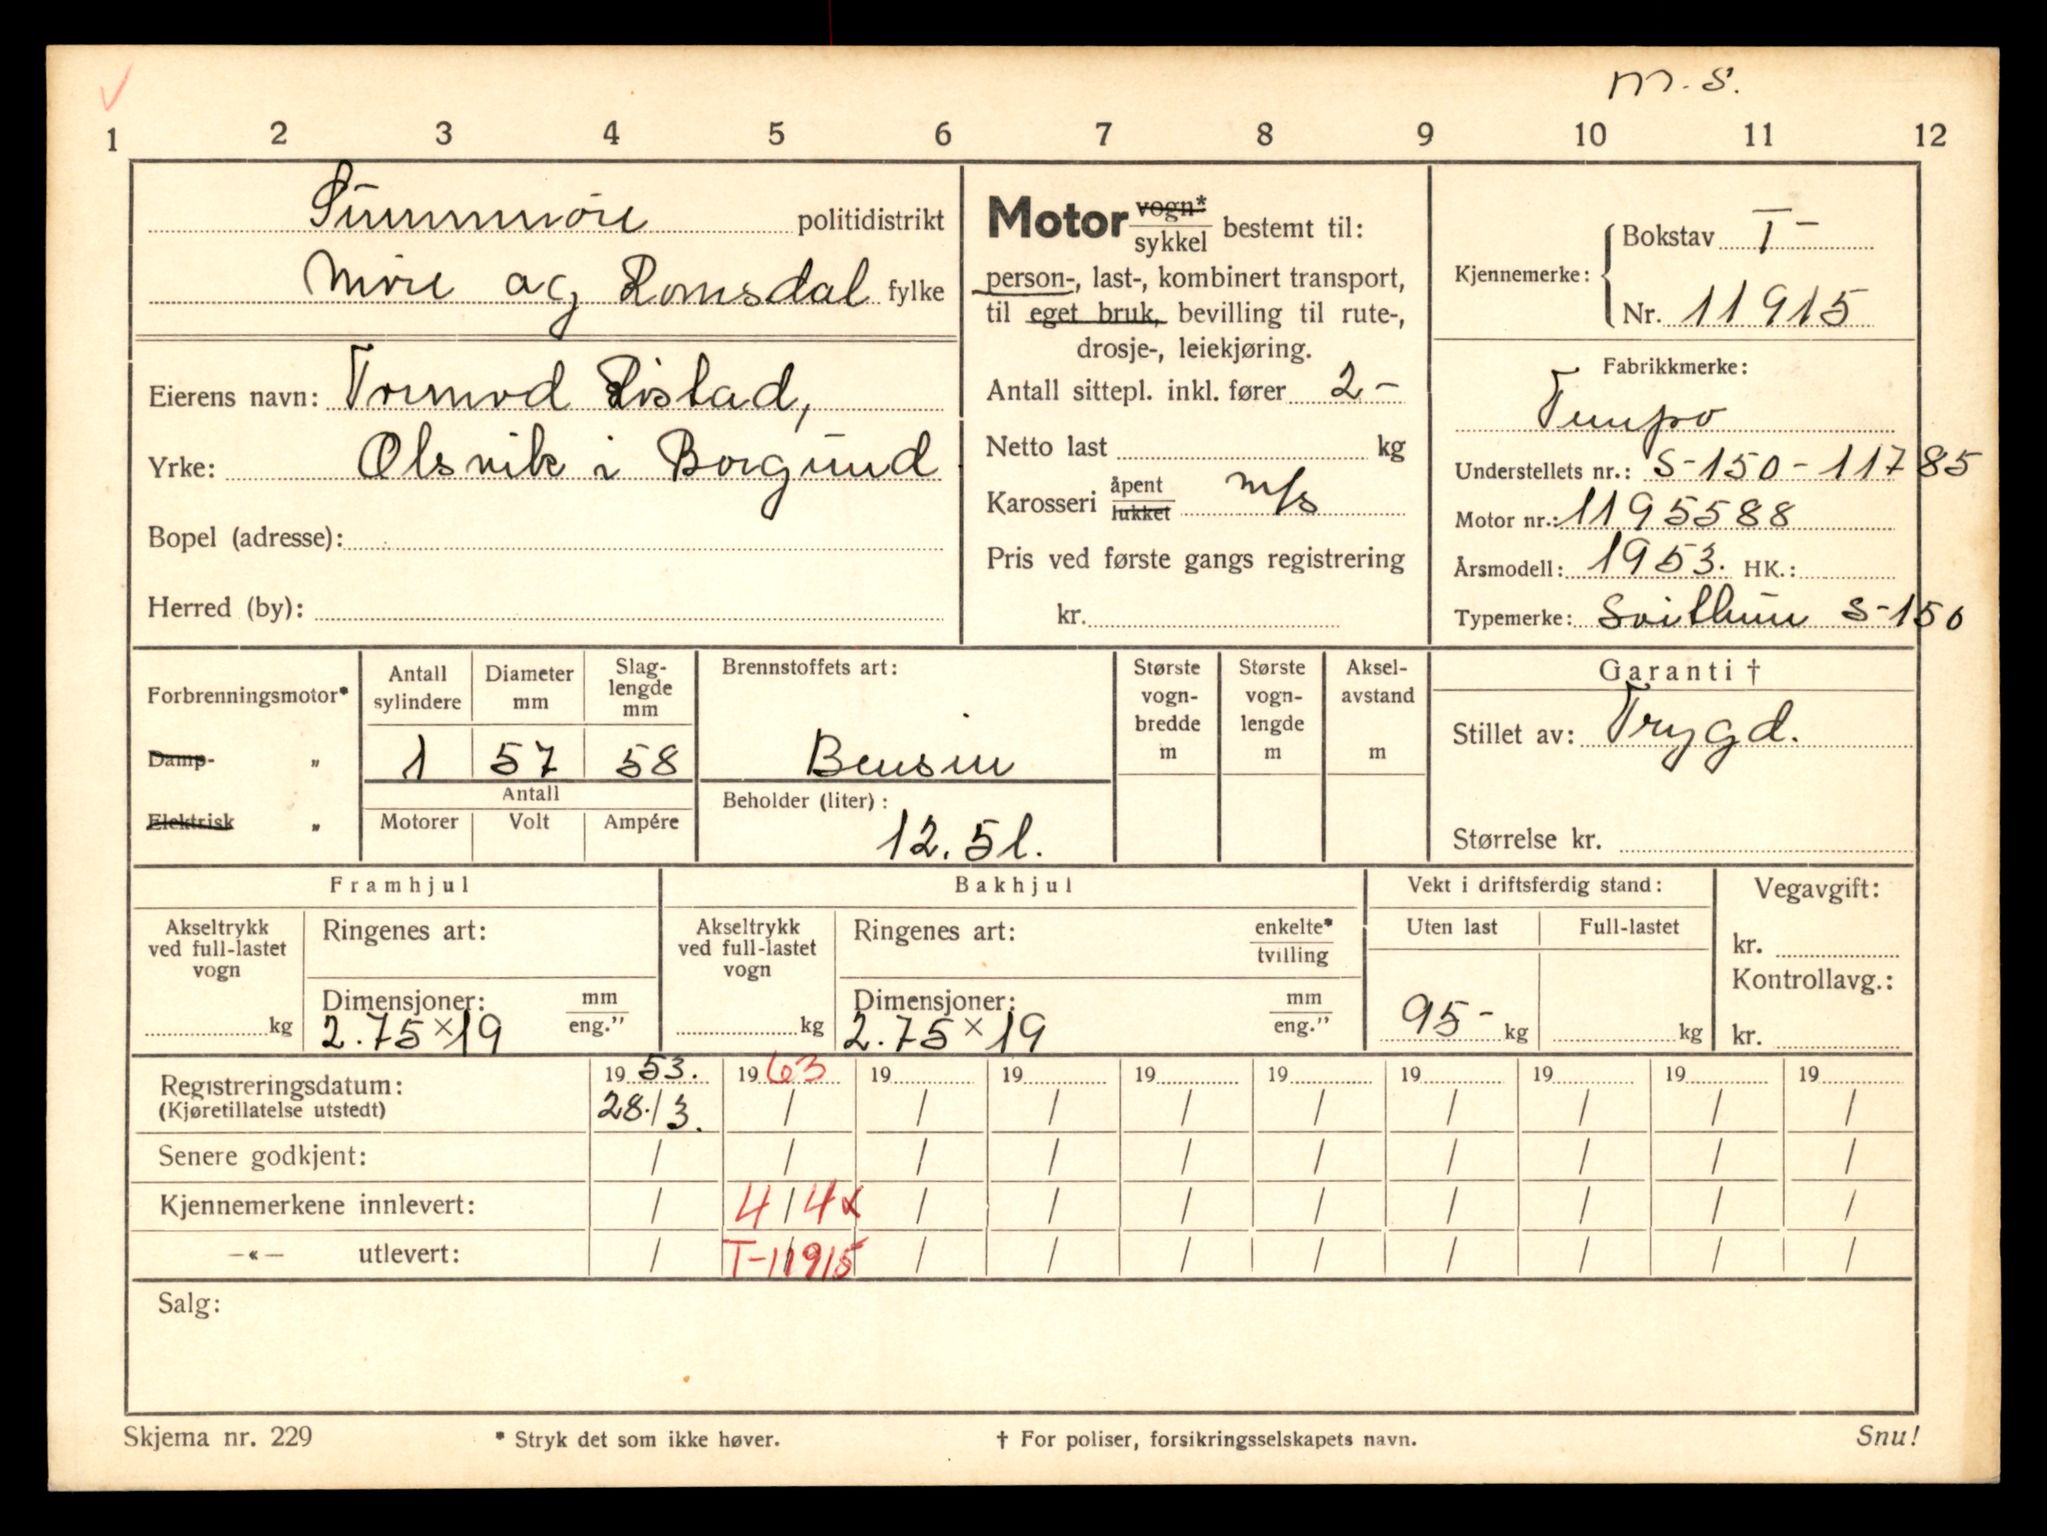 m. s.
1 2 3 4 5 6 7 8 9 10 11 12
Sunnmöre politidistrikt
Möre og Romsdal fylke
Eierens navn: Tormod Ristad,
Yrke: Olsvik i Borgund
Bopel (adresse):
Herred (by):
Motor vogn* / sykkel bestemt til:
person-, last-, kombinert transport,
til eget bruk, bevilling til rute-,
drosje-, leiekjøring.
Antall sittepl. inkl. fører 2-
Netto last kg
Karosseri åpent / lukket m/s
Pris ved første gangs registrering
kr.
Kjennemerke: Bokstav T-
Nr. 11915
Fabrikkmerke:
Tempo
Understellets nr.: S-150-11785
Motor nr.: 1195588
Årsmodell: 1953. HK.:
Typemerke: Svithun S-150
Forbrenningsmotor*
Damp- „
Elektrisk „
Antall sylindere Diameter mm Slag-lengde mm
1 57 58
Antall
Motorer Volt Ampére
Brennstoffets art:
Bensin
Beholder (liter):
12.5 l.
Største vogn-bredde m
Største vogn-lengde m
Aksel-avstand m
Garanti †
Stillet av: Trygd.
Størrelse kr.
Framhjul
Akseltrykk
ved full-lastet
vogn
kg
Ringenes art:
Dimensjoner: mm / eng."
2.75 × 19
Bakhjul
Akseltrykk
ved full-lastet
vogn
kg
Ringenes art: enkelte* / tvilling
Dimensjoner: mm / eng."
2.75 × 19
Vekt i driftsferdig stand:
Uten last Full-lastet
95- kg kg
Vegavgift:
kr.
Kontrollavg.:
kr.
Registreringsdatum: 19 53. 19 63 19 19 19 19 19 19 19 19
(Kjøretillatelse utstedt) 28./3. / / / / / / / / /
Senere godkjent: / / / / / / / / / /
Kjennemerkene innlevert: / 4/4 / / / / / / / /
—«— utlevert: / T-11915 / / / / / / / /
Salg:
Skjema nr. 229 * Stryk det som ikke høver. † For poliser, forsikringsselskapets navn. Snu!